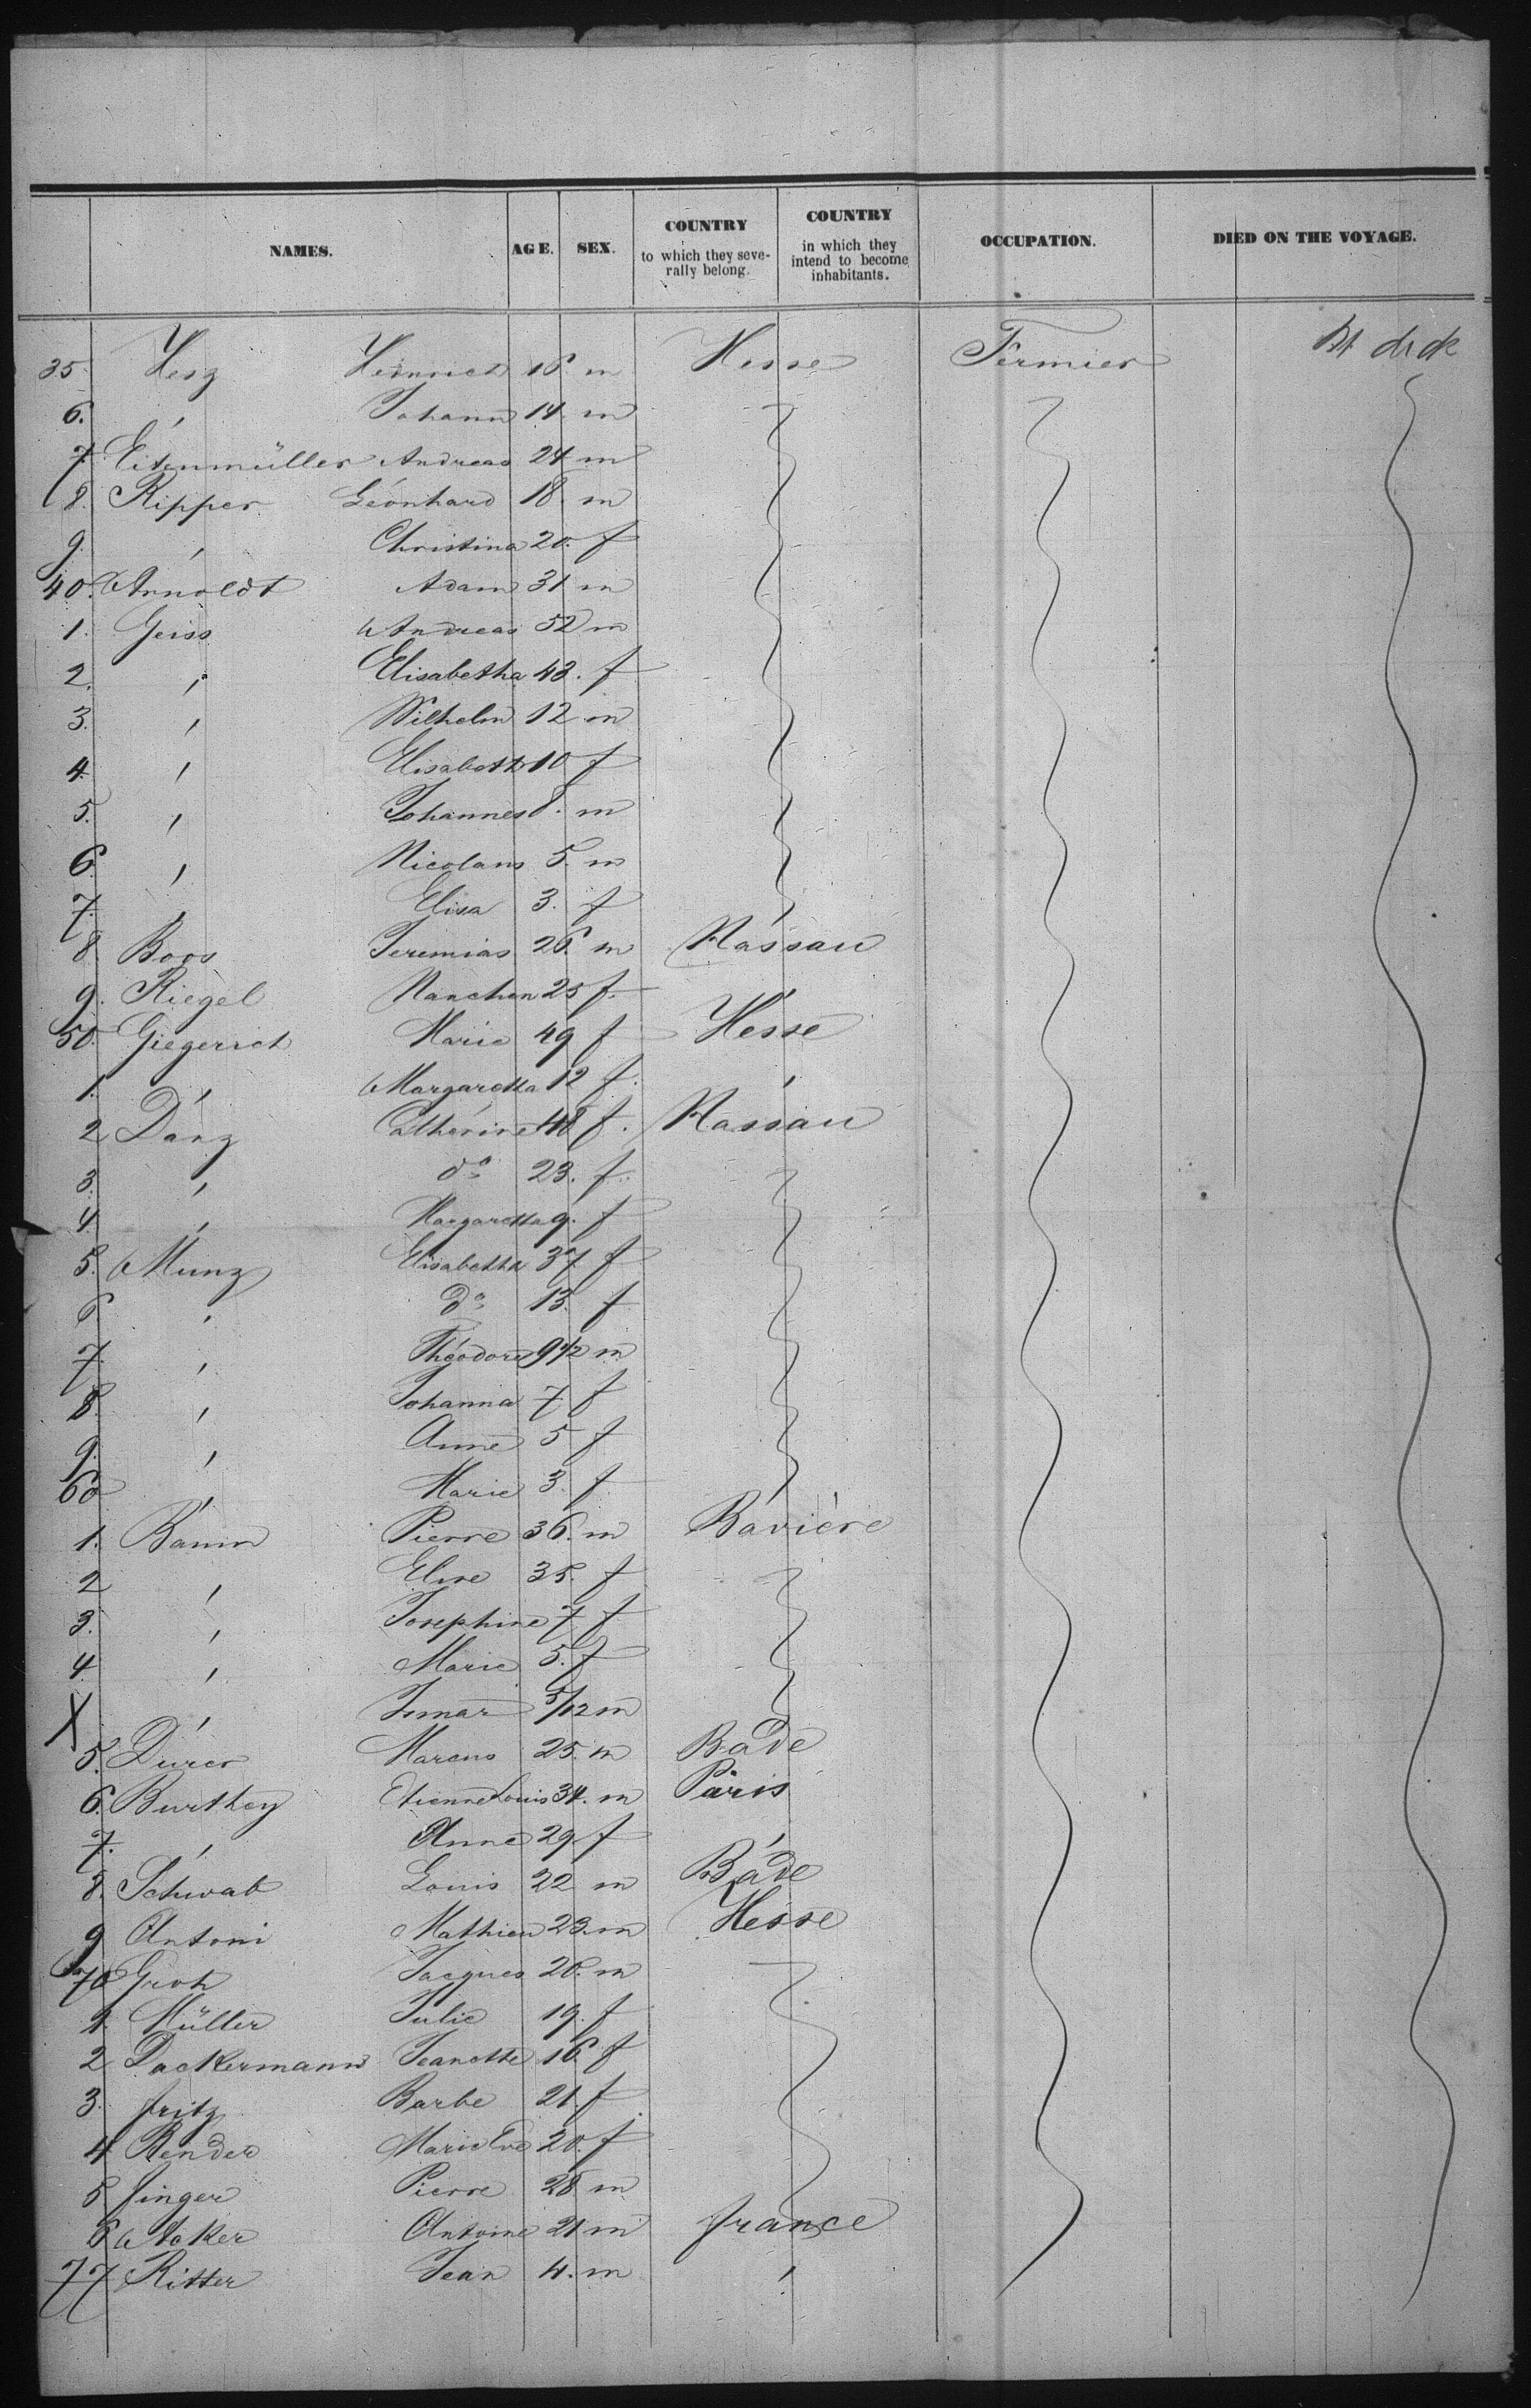 NAMES. AGE. SEX. COUNTRY to which they severally belong. COUNTRY in which they intend to become inhabitants. OCCUPATION. DIED ON THE VOYAGE.
35. Hesz Heinrich 16 m Hesse Fermier
6. " Johann 14 m
7 Eisenmüller Andreas 24 m
8. Ripper Léonhard 18 m
9. " Christina 20. f
40. Arnoldt Adam 31 m
1. Geiss Andreas 52 m
2. " Elisabetha 43. f
3. " Wilhelm 12 m
4. " Elisabeth 10 f
5. " Johannes 8. m
6 " Nicolaus 5. m
7. " Elisa 3. f "
8 Boos Jeremias 26. m Nassau
9. Riegel Nanchen 25 f. "
50. Giegerich Marie 49 f Hesse
1. " Margaretta 12 f. "
2 Danz Cathérine 48 f. Nassau
3. " do 23. f.
4. " Margaretta 9. f
5. Munz Elisabetha 37 f
6 " do 13. f
7. " Théodore 9 1/2 m
8. " Johanna 7 f
9. " Anne 5 f
60 " Marie 3. f
1. Bamm Pierre 36. m Bavière
2 " Elise 35. f
3. " Josephine 7 f
4 " Marie 5. f
X " 5/12 m
5. Dürer Marcus 25. m Bade
6. Burthey Etienne Louis 34. m Paris
7. " Anne 29. f "
8. Schwab Louis 22 m Bade
9 Antoni Mathieu 23. m Hesse
70 Groh Jacques 20. m
1. Müller Julie 19. f
2 Dackermann Jeanette 16. f
3. fritz Barbe 21. f
4 Bender Marie Eve 20. f
5 finger Pierre 28 m
6 Aoker Antoine 21 m france
77 Ritter Jean 4. m "